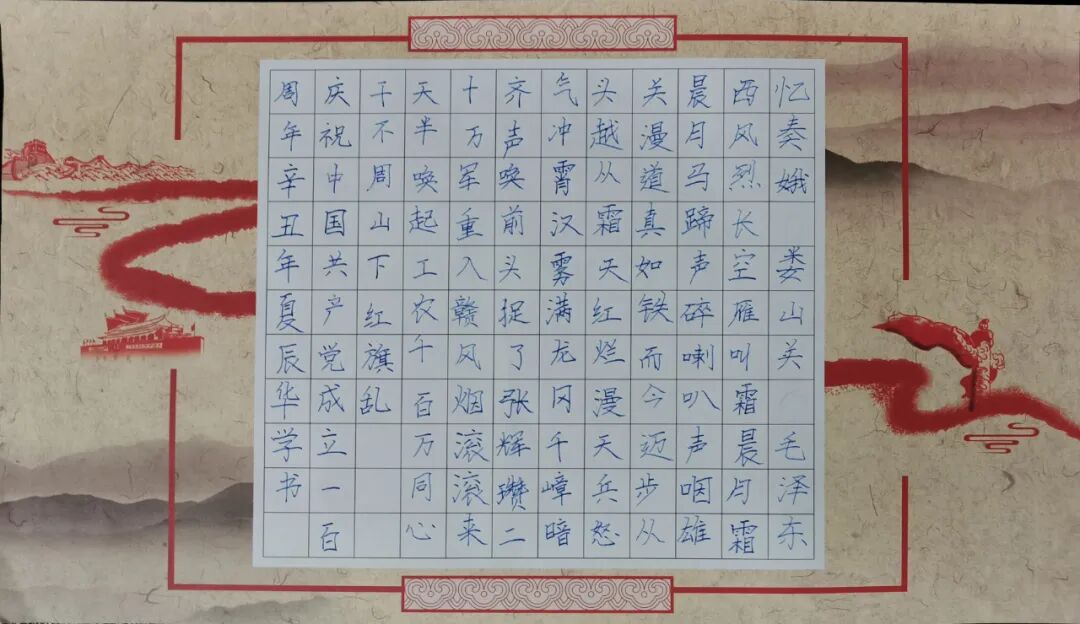 忆奏娥 娄山关 毛泽东
西风烈长空雁叫霜晨月霜
晨月马蹄声碎喇叭声咽雄
关漫道真如铁而今迈步从
头越从霜天红烂漫天兵怒
气冲霄汉雾满龙冈千嶂暗
齐声唤前头捉了张辉瓒二
十万军重入赣风烟滚滚来
天半唤起工农千百万同心
干不周山下红旗乱
庆祝中国共产党成立一百
周年辛丑年夏辰华学书